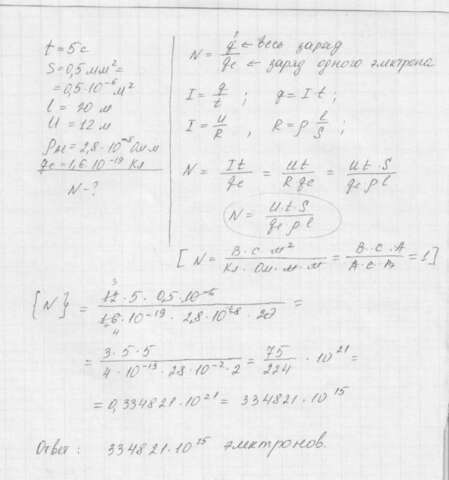 t = 5 с
S = 0,5 мм² =
= 0,5·10⁻⁶ м²
l = 20 м
U = 12 м
ρ = 2,8·10⁻⁸ Ом м
qe = 1,6·10⁻¹⁹ Кл
N - ?
N = q ← весь заряд / qe ← заряд одного электрона
I = q/t ; q = I t ;
I = U/R , R = ρ l/S ;
N = It/qe = Ut/(R qe) = Ut·S/(qe ρ l)
N = U·t·S/(qe ρ l)
[ N = В·с·м²/(Кл·Ом·м·м) = В·с·А/(А·с·В) = 1 ]
{N} = 12·5·0,5·10⁻⁶/(1,6·10⁻¹⁹·2,8·10⁻⁸·20) =
= 3·5·5/(4·10⁻¹³·28·10⁻²·2) = 75/224 · 10²¹ =
= 0,334821·10²¹ = 334821·10¹⁵
Ответ: 334821·10¹⁵ электронов.